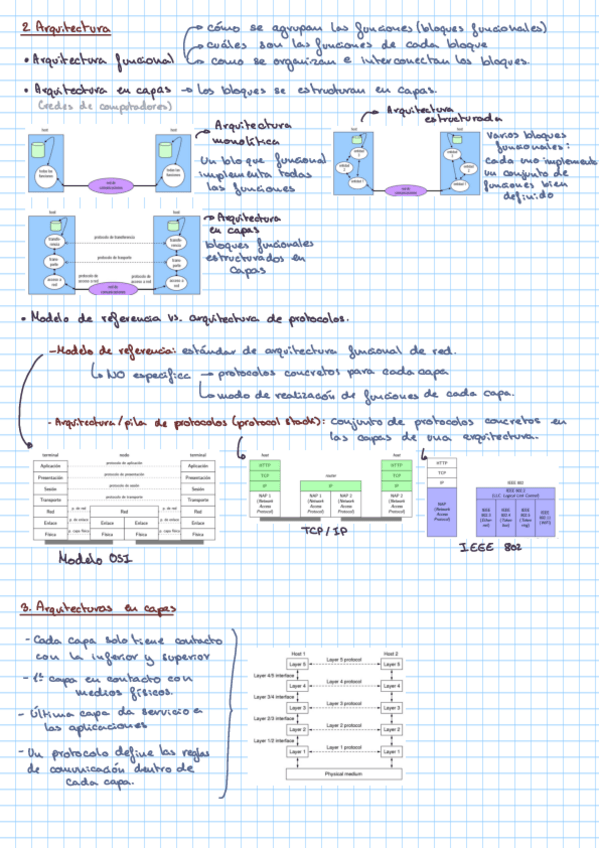 2. Arquitectura
cómo se agrupan las funciones (bloques funcionales)
cuáles son las funciones de cada bloque
• Arquitectura funcional
como se organizan e interconectan los bloques.
• Arquitectura en capas → los bloques se estructuran en capas.
(redes de computadores)
Arquitectura
monolítica
Un bloque funcional
implementa todas
las funciones
host
host
todas las
funciones
todas las
funciones
red de
comunicaciones
Arquitectura
estructurada
Varios bloques
funcionales:
cada uno implementa
un conjunto de
funciones bien
definido
host
host
red de
comunicaciones
Arquitectura
en capas
bloques funcionales
estructurados en
capas
host
host
protocolo de transferencia
protocolo de transporte
protocolo de
acceso a red
protocolo de
acceso a red
transfe-
rencia
trans-
porte
acceso a
red
transfe-
rencia
trans-
porte
acceso a
red
red de
comunicaciones
• Modelo de referencia vs. arquitectura de protocolos.
- Modelo de referencia: estándar de arquitectura funcional de red.
NO especifica → protocolos concretos para cada capa
modo de realización de funciones de cada capa.
- Arquitectura/pila de protocolos (protocol stack): conjunto de protocolos concretos en
las capas de una arquitectura.
terminal nodo terminal
Aplicación protocolo de aplicación Aplicación
Presentación protocolo de presentación Presentación
Sesión protocolo de sesión Sesión
Transporte protocolo de transporte Transporte
Red p. de red Red p. de red Red
Enlace p. de enlace Enlace Enlace p. de enlace Enlace
Física p. capa física Física Física p. capa física Física
Modelo OSI
host host
HTTP HTTP
TCP router TCP
IP IP IP
NAP 1
(Network
Access
Protocol)
NAP 1
(Network
Access
Protocol)
NAP 2
(Network
Access
Protocol)
NAP 2
(Network
Access
Protocol)
TCP/IP
HTTP
TCP
IP
NAP
(Network
Access
Protocol)
IEEE 802
IEEE 802.2
(LLC: Logical Link Control)
IEEE
802.3
(Ether-
net)
IEEE
802.4
(Token
bus)
IEEE
802.5
(Token
ring)
IEEE
802.11
(WiFi)
IEEE 802
3. Arquitecturas en capas
- Cada capa solo tiene contacto
con la inferior y superior
- 1ª capa en contacto con
medios físicos.
- Última capa da servicio a
las aplicaciones
- Un protocolo define las reglas
de comunicación dentro de
cada capa.
Host 1 Host 2
Layer 5 Layer 5 protocol Layer 5
Layer 4/5 interface
Layer 4 Layer 4 protocol Layer 4
Layer 3/4 interface
Layer 3 Layer 3 protocol Layer 3
Layer 2/3 interface
Layer 2 Layer 2 protocol Layer 2
Layer 1/2 interface
Layer 1 Layer 1 protocol Layer 1
Physical medium